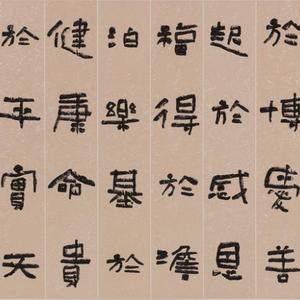 於博愛善
起於感恩
福得於澹
泊樂基於
健康命貴
於平實天